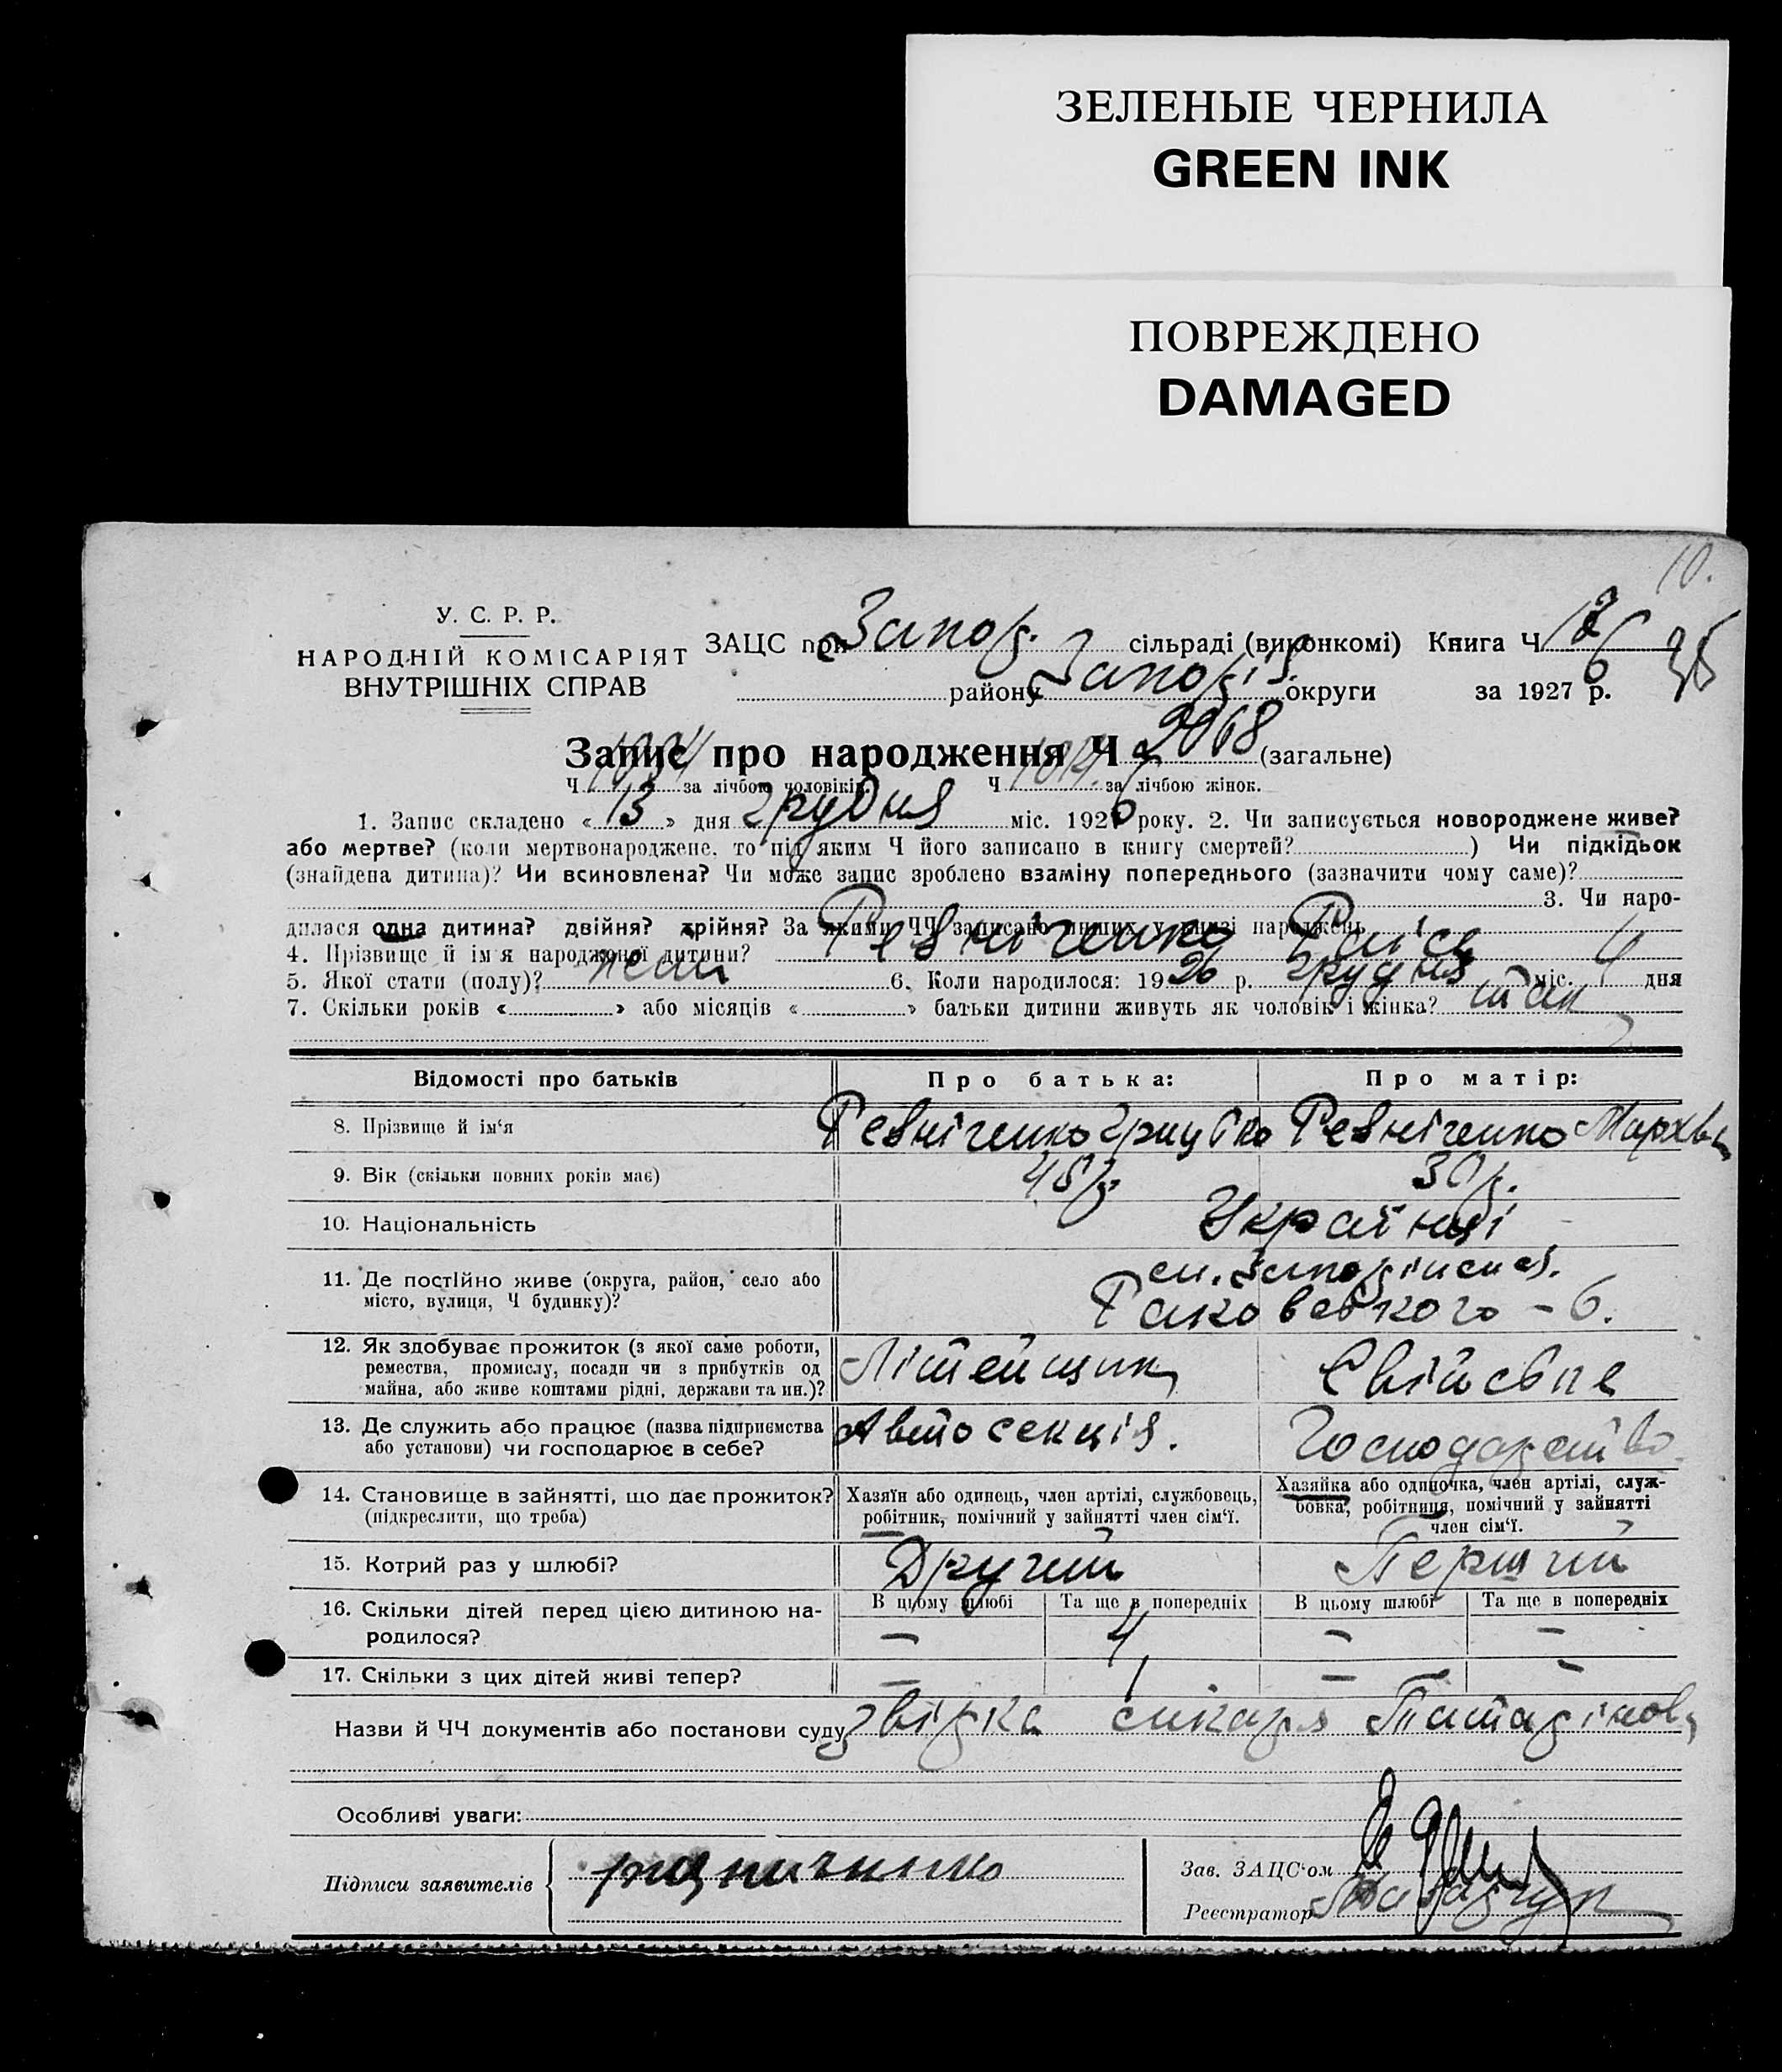 ЗЕЛЕНЫЕ ЧЕРНИЛА
GREEN INK
ПОВРЕЖДЕНО
DAMAGED
10.
У. С. Р. Р.
НАРОДНІЙ КОМІСАРІЯТ
ВНУТРІШНІХ СПРАВ
ЗАЦС при Запор. сільраді (виконкомі) Книга Ч 12
району Запоріз. округи за 1926 р.
Запис про народження Ч 2068 (загальне)
Ч за лічбою чоловіків. Ч 1014 за лічбою жінок.
1. Запис складено « 13 » дня грудня міс. 1926 року. 2. Чи записується новороджене живе?
або мертве? (коли мертвонароджене, то під яким Ч його записано в книгу смертей? ) Чи підкідьок
(знайдена дитина)? Чи всиновлена? Чи може запис зроблено взаміну попереднього (зазначити чому саме)?
3. Чи наро-
дилася одна дитина? двійня? трійня? За якими ЧЧ записано инших у книзі народжень
4. Прізвище й ім'я народженої дитини? Ревніченко Раїса
5. Якої стати (полу)? жен 6. Коли народилося: 1926 р. грудня міс. 4 дня
7. Скільки років « » або місяців « » батьки дитини живуть як чоловік і жінка? так
Відомості про батьків Про батька: Про матір:
8. Прізвище й ім'я Ревніченко Грицько Ревніченко Мархва
9. Вік (скільки повних років має) 45 р. 30 р.
10. Національність Українці
11. Де постійно живе (округа, район, село або
місто, вулиця, Ч будинку)?
Раковського – 6.
12. Як здобуває прожиток (з якої саме роботи,
ремества, промислу, посади чи з прибутків од
майна, або живе коштами рідні, держави та ин.)?
Літейщик Свійське
13. Де служить або працює (назва підприємства
або установи) чи господарює в себе?
Автосекція. Господарство
14. Становище в зайнятті, що дає прожиток?
(підкреслити, що треба)
Хазяїн або одинець, член артілі, службовець,
робітник, помічний у зайнятті член сім'ї.
Хазяйка або одиночка, член артілі, служ-
бовка, робітниця, помічний у зайнятті
член сім'ї.
15. Котрий раз у шлюбі? Другий Перший
16. Скільки дітей перед цією дитиною на-
родилося?
В цьому шлюбі Та ще в попередніх В цьому шлюбі Та ще в попередніх
– 4 – –
17. Скільки з цих дітей живі тепер? – 1 – –
Назви й ЧЧ документів або постанови суду звідка лікаря
Особливі уваги:
Підписи заявителів
Зав. ЗАЦС'ом
Реєстратор